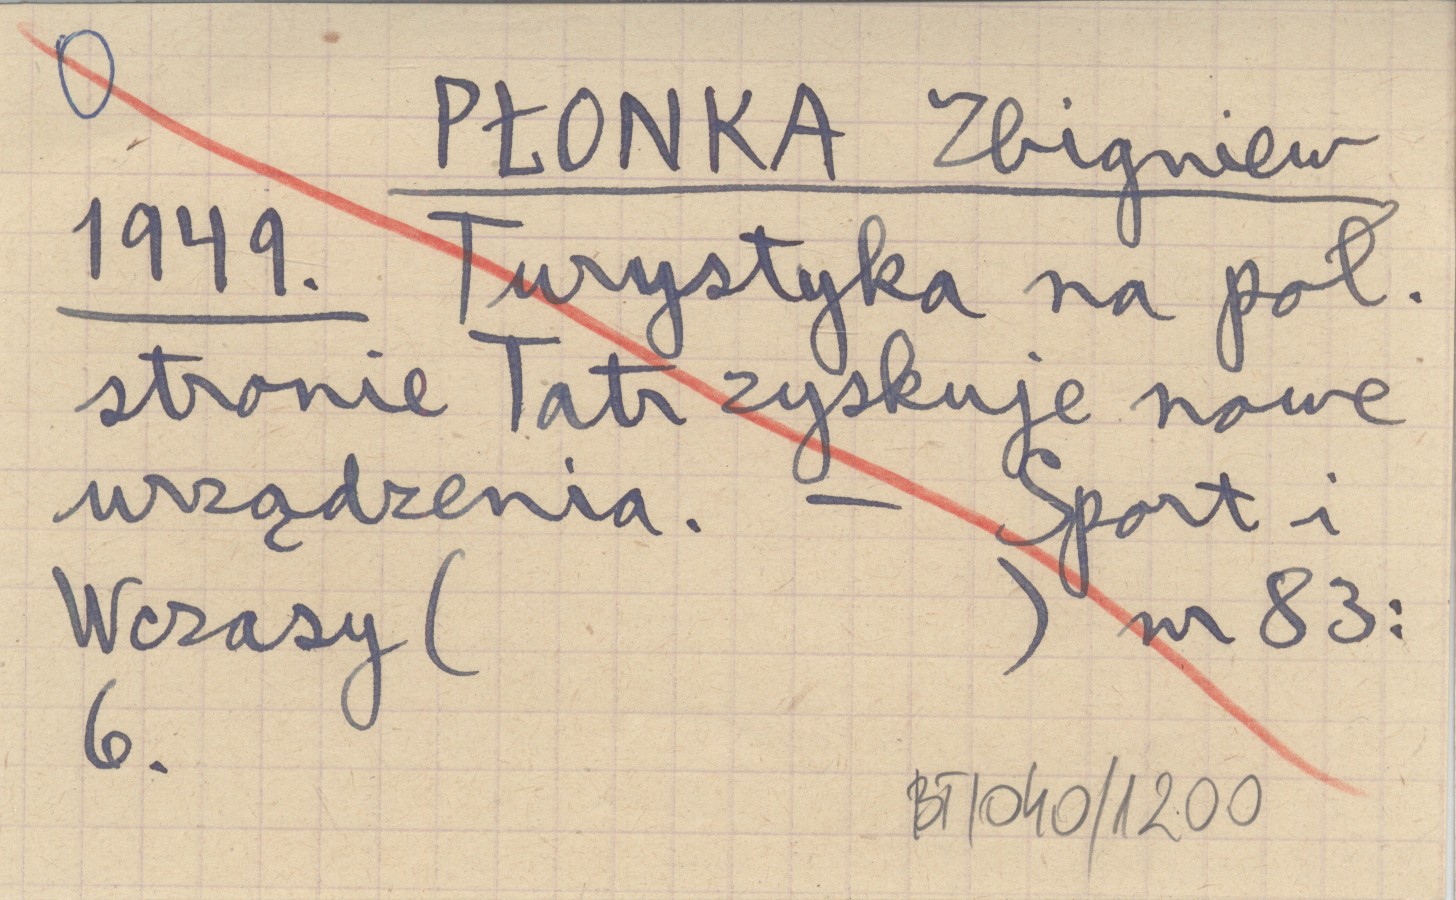 PŁONKA Zbigniew
1949. Turystyka na poł.
stronie Tatr zyskuje nowe
urządzenia. — Sport i
Wczasy ( ) nr 83:
6.
BT/040/1200